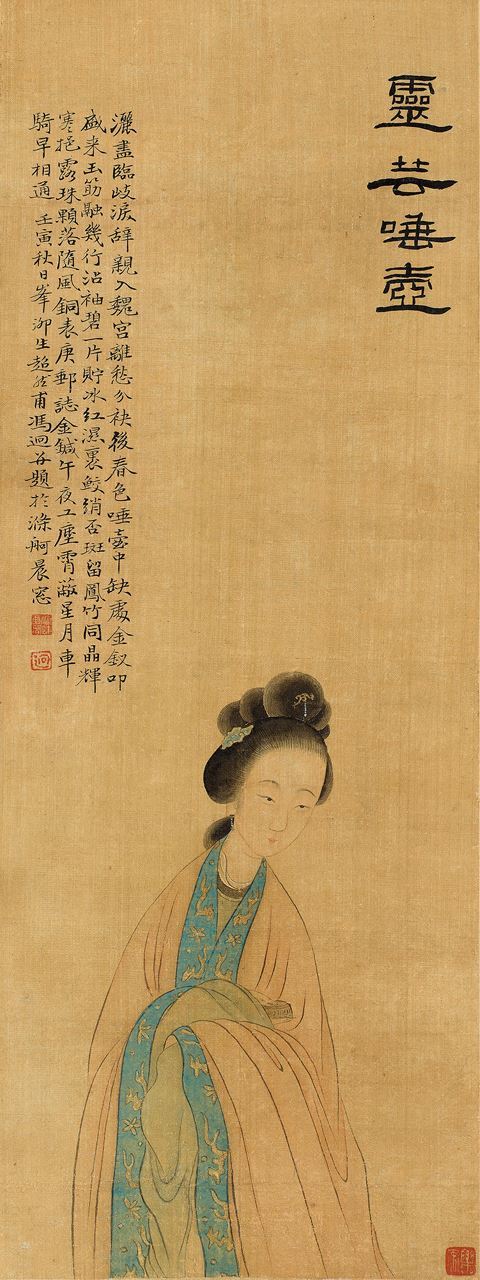 靈芸唾壺
灑盡臨歧淚辞親入魏宮離愁分袂後春色唾壺中缺處金釵叩
盛来玉筯融幾行沾袖碧一片貯冰紅濕裹鮫綃否斑留鳳竹同晶輝
寒挹露珠顆落隨風銅表庚郵誌金鍼午夜工塵霄蔽星月車
騎早相通 壬寅秋日峯泖生超然甫馮迥谷題於滌舸晨窓
迥